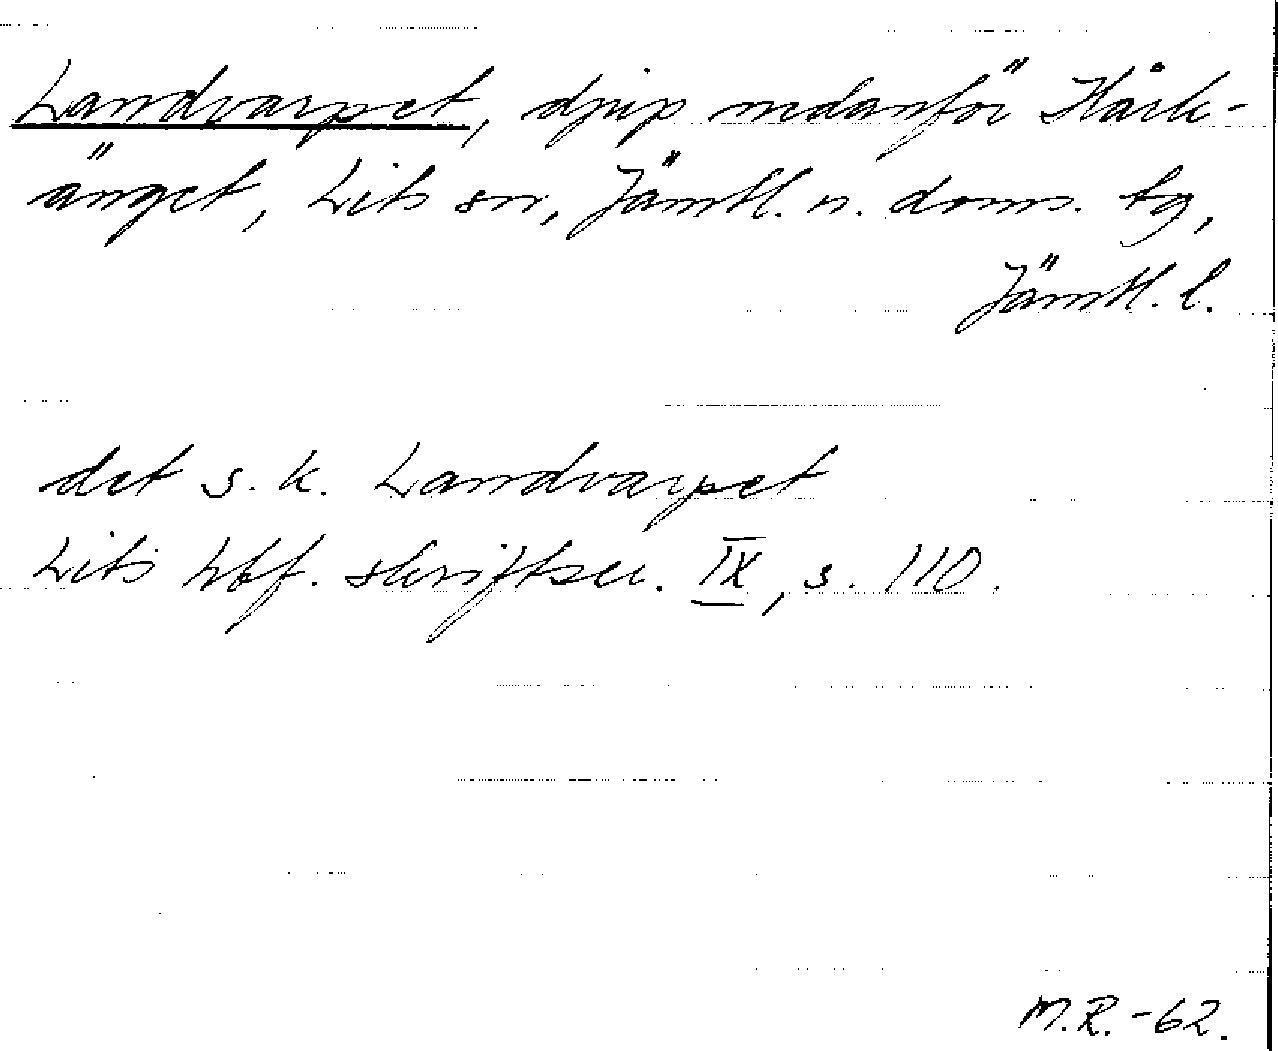 Landvarpet, djup nedanför Hårk-
änget, Lits sn, Jämtl. n. doms. tg,
Jämtl. l.
det s. k. Landvarpet
Lits hbf. skriftser. IX, s. 110.
M.R.-62.